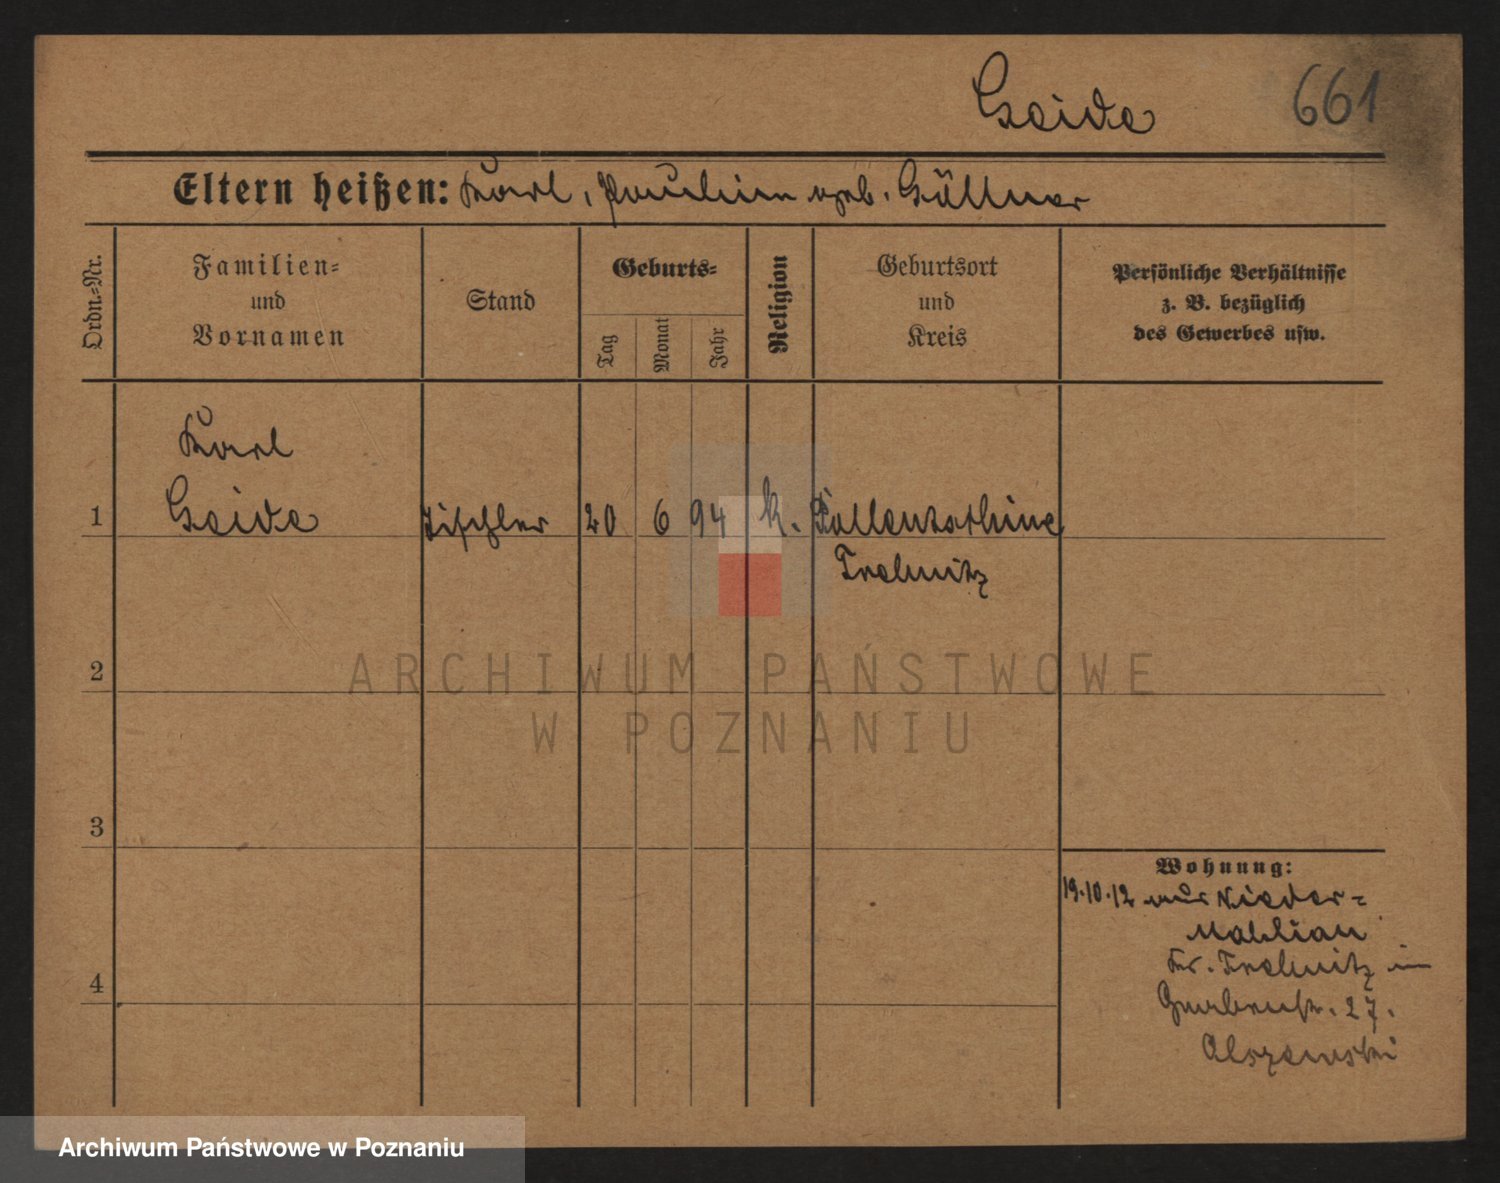 Geide 661
Eltern heißen: Karl, Paulina geb. Göllner
Ordn.=Nr.
Familien=
und
Vornamen
Stand
Geburts=
Tag
Monat
Jahr
Religion
Geburtsort
und
Kreis
Persönliche Verhältnisse
z. B. bezüglich
des Gewerbes usw.
Karl
1 Geide Tischler 20 6 94 k.
Trebnitz
2
3
4
Wohnung:
19.10.12 aus Nieder=
Mahlian
Kr. Trebnitz in
Grabenstr. 27.
Olszewski
ARCHIWUM PAŃSTWOWE
W POZNANIU
Archiwum Państwowe w Poznaniu